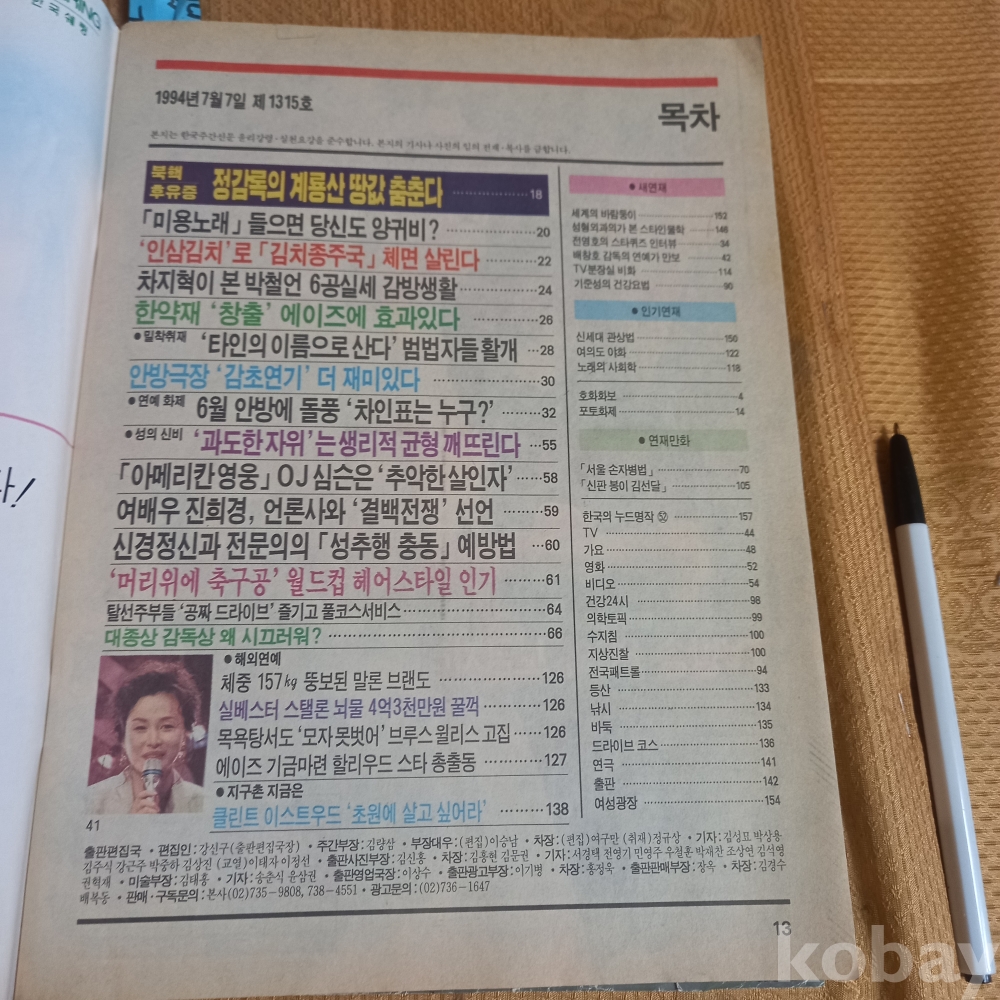 한국쉐링
다!
1994년 7월 7일 제1315호
목차
본지는 한국주간신문 윤리강령·실천요강을 준수합니다. 본지의 기사나 사진의 임의 전재·복사를 금합니다.
북핵 후유증 정감록의 계룡산 땅값 춤춘다 18
「미용노래」 들으면 당신도 양귀비? 20
'인삼김치'로 「김치종주국」 체면 살린다 22
차지혁이 본 박철언 6공실세 감방생활 24
한약재 '창출' 에이즈에 효과있다 26
●밀착취재 '타인의 이름으로 산다' 범법자들 활개 28
안방극장 '감초연기' 더 재미있다 30
●연예 화제 6월 안방에 돌풍 '차인표는 누구?' 32
●성의 신비 '과도한 자위'는 생리적 균형 깨뜨린다 55
「아메리칸 영웅」 OJ심슨은 '추악한 살인자' 58
여배우 진희경, 언론사와 '결백전쟁' 선언 59
신경정신과 전문의의 「성추행 충동」 예방법 60
'머리위에 축구공' 월드컵 헤어스타일 인기 61
탈선주부들 '공짜 드라이브' 즐기고 풀코스서비스 64
대종상 감독상 왜 시끄러워? 66
●해외연예
체중 157kg 뚱보된 말론 브랜도 126
실베스터 스탤론 뇌물 4억3천만원 꿀꺽 126
목욕탕서도 '모자 못벗어' 브루스 윌리스 고집 126
에이즈 기금마련 할리우드 스타 총출동 127
●지구촌 지금은
클린트 이스트우드 '초원에 살고 싶어라' 138
41
●새연재
세계의 바람둥이 152
성형외과의가 본 스타인물학 146
전영호의 스타퀴즈 인터뷰 34
배창호 감독의 연예가 만보 42
TV분장실 비화 114
기준성의 건강요법 90
●인기연재
신세대 관상법 150
여의도 야화 122
노래의 사회학 118
호화화보 4
포토화제 14
●연재만화
「서울 손자병법」 70
「신판 봉이 김선달」 105
한국의 누드명작 52 157
TV 44
가요 48
영화 52
비디오 54
건강24시 98
의학토픽 99
수지침 100
지상진찰 100
전국패트롤 94
등산 133
낚시 134
바둑 135
드라이브 코스 136
연극 141
출판 142
여성광장 154
출판편집국 • 편집인: 강신구(출판편집국장) • 주간부장: 김량삼 • 부장대우: (편집)이승남 • 차장: (편집)여구만 (취재)정규상 • 기자: 김성표 박상용
김주식 강근주 박중하 김상진 (교열)이태자 이정선 • 출판사진부장: 김신홍 • 차장: 김홍현 김문권 • 기자: 서경택 전영기 민영주 우철훈 박재찬 조상연 김석영
권혁재 • 미술부장: 김태홍 • 기자: 송춘식 윤삼권 • 출판영업국장: 이상수 • 출판광고부장: 이기병 • 차장: 홍정욱 • 출판판매부장: 장옥 • 차장: 김경수
배복동 • 판매·구독문의: 본사(02)735-9808, 738-4551 • 광고문의: (02)736-1647
13
kobay